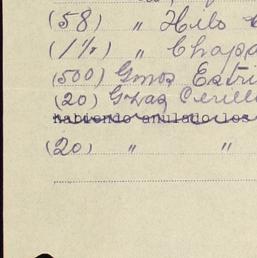 (58) " Hilo
(1½) " Chapa
(500) Gmos Estri
(20) Grzas Cerill
habiendo anulado los
(20) " "